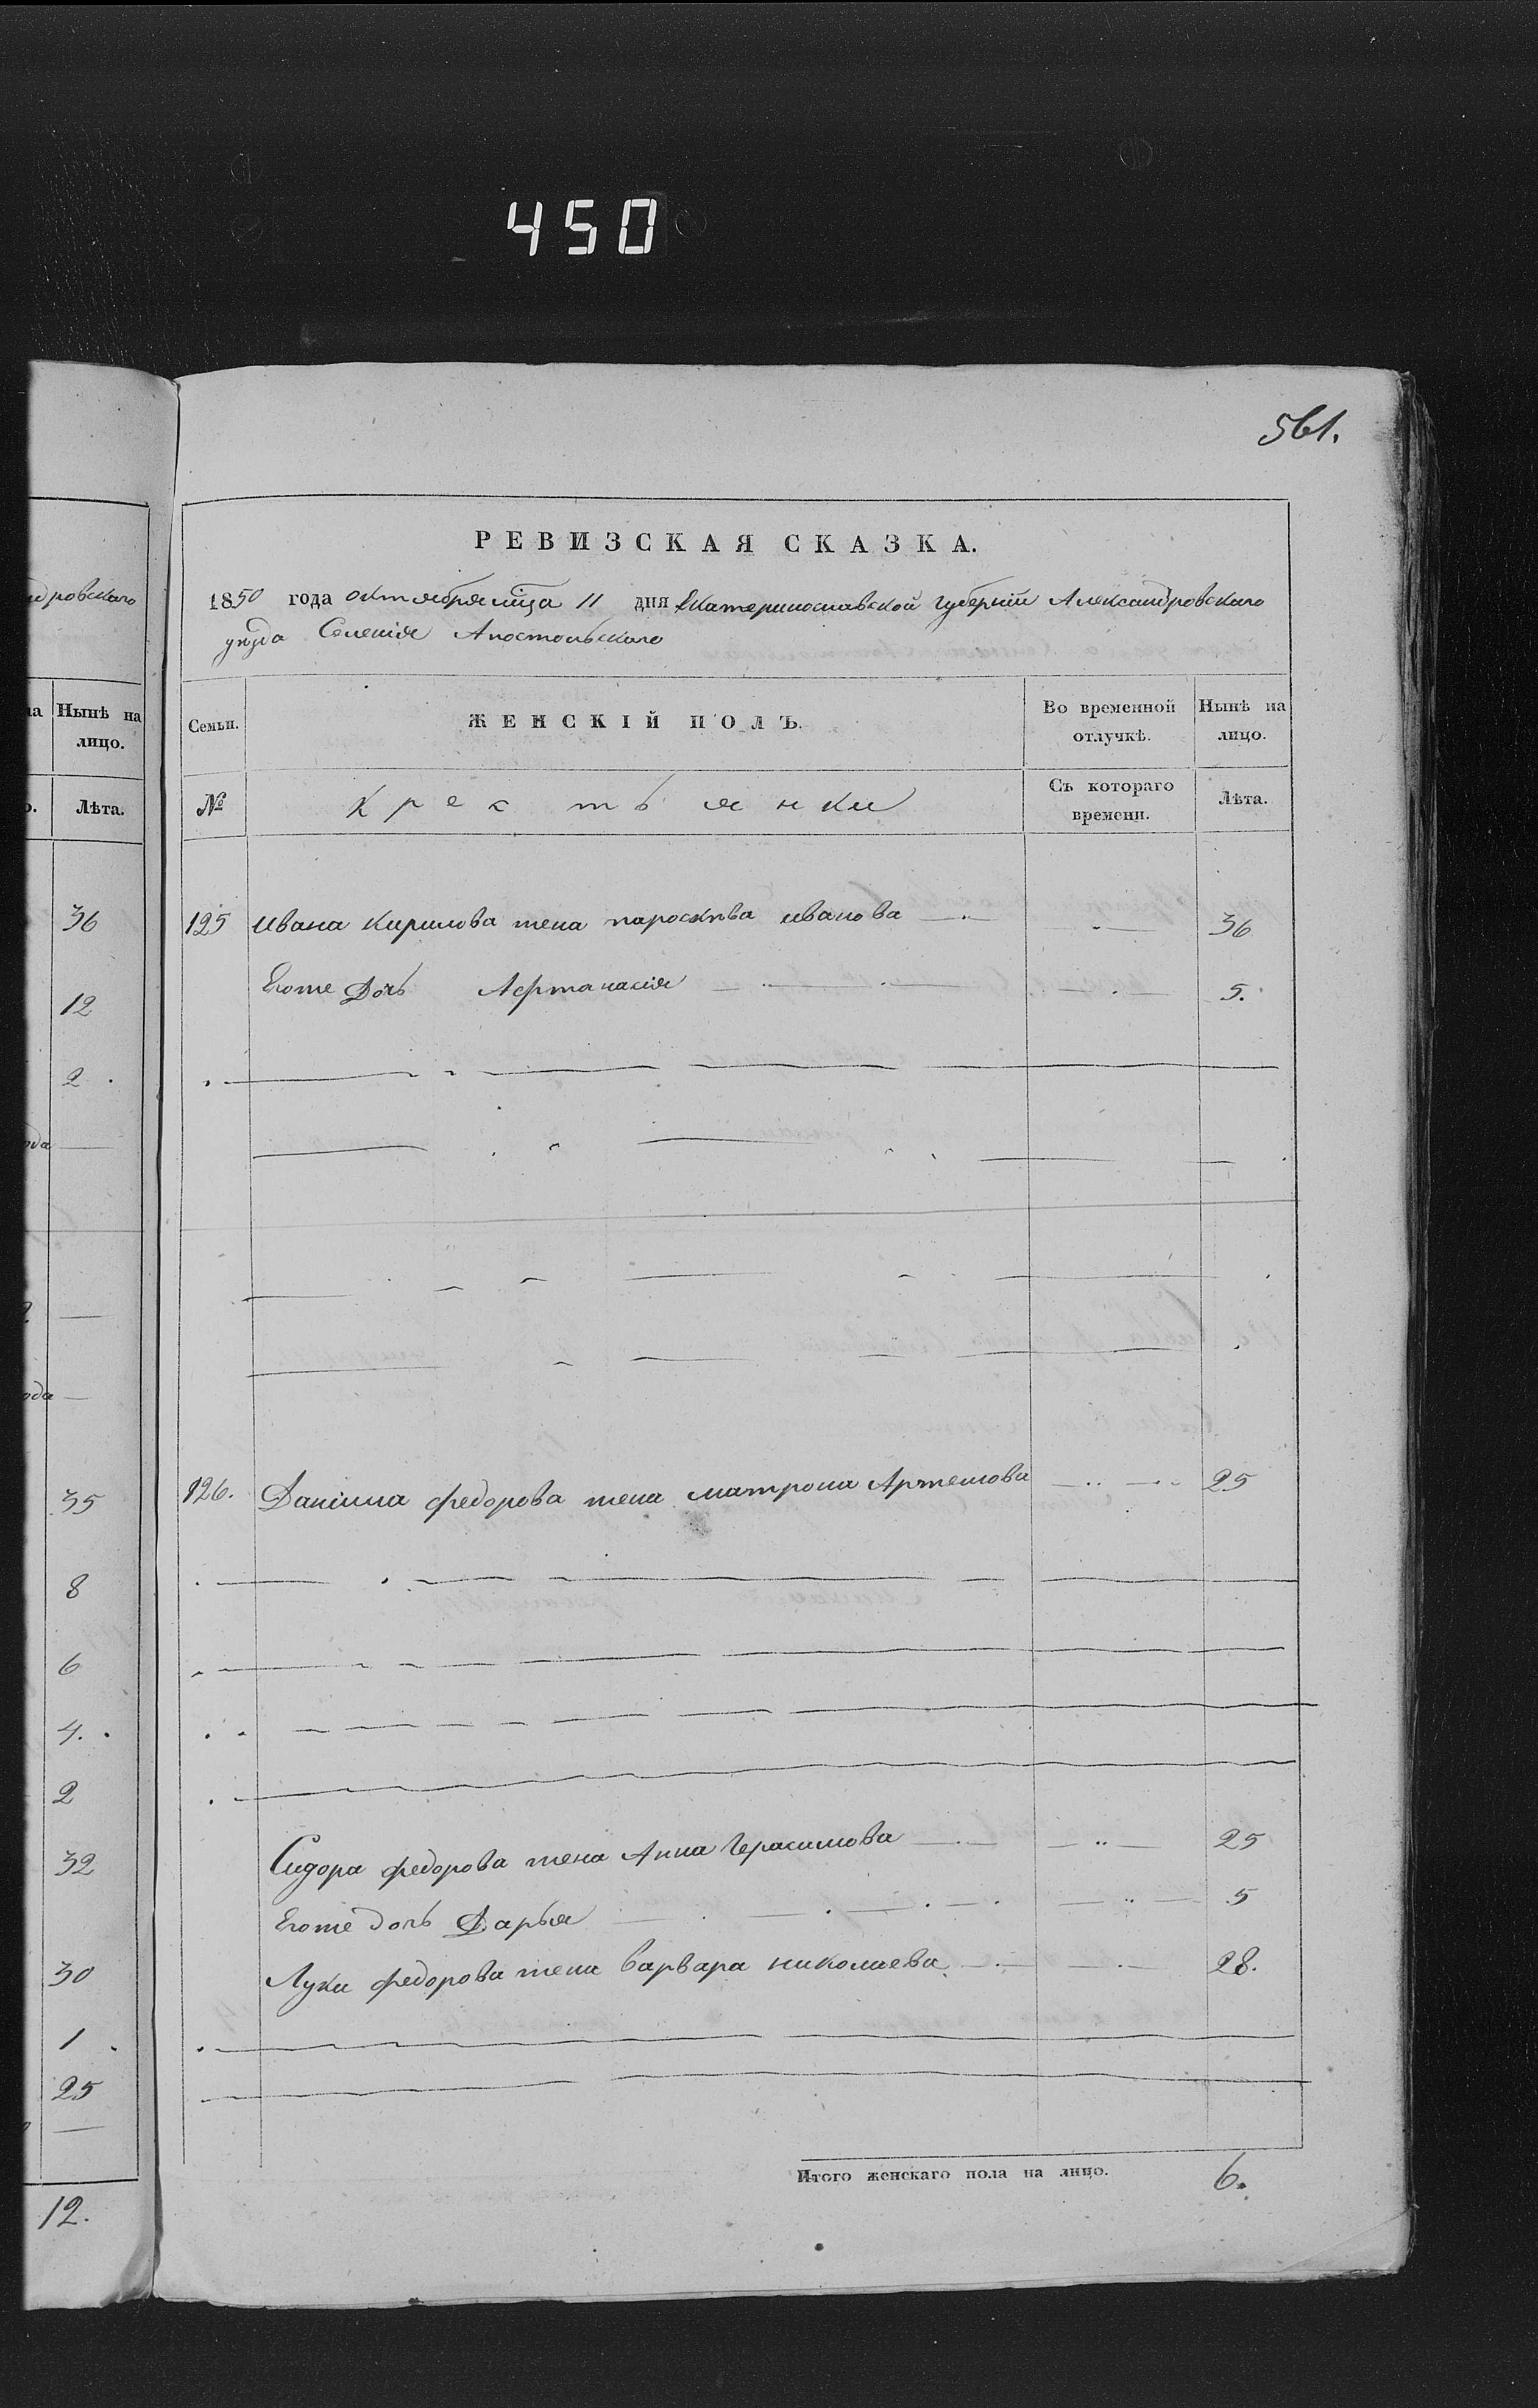 450
561.
дровскаго
на Нынѣ на лицо.
Лѣта.
36
12
2
ода
ода
35
8
6
4.
2
32
30
1
25
12.
РЕВИЗСКАЯ СКАЗКА.
1850 года октября мца 11 дня Екатеринославской губерніи Александровскаго
уѣзда Селенія Апостольскаго
Семьи. ЖЕНСКІЙ ПОЛЪ. Во временной отлучкѣ. Нынѣ на лицо.
№ Крестьянки Съ котораго времени. Лѣта.
125 Ивана Кирилова жена Пароскѣва Иванова 36
Егоже Дочь Афтанасія 5.
126. Даніила Федорова жена Матрона Артемова 25
Сидора Федорова жена Анна Герасимова 25
Егоже дочь Дарья 5
Луки Федорова жена Варвара Николаева 28.
Итого женскаго пола на лицо. 6.